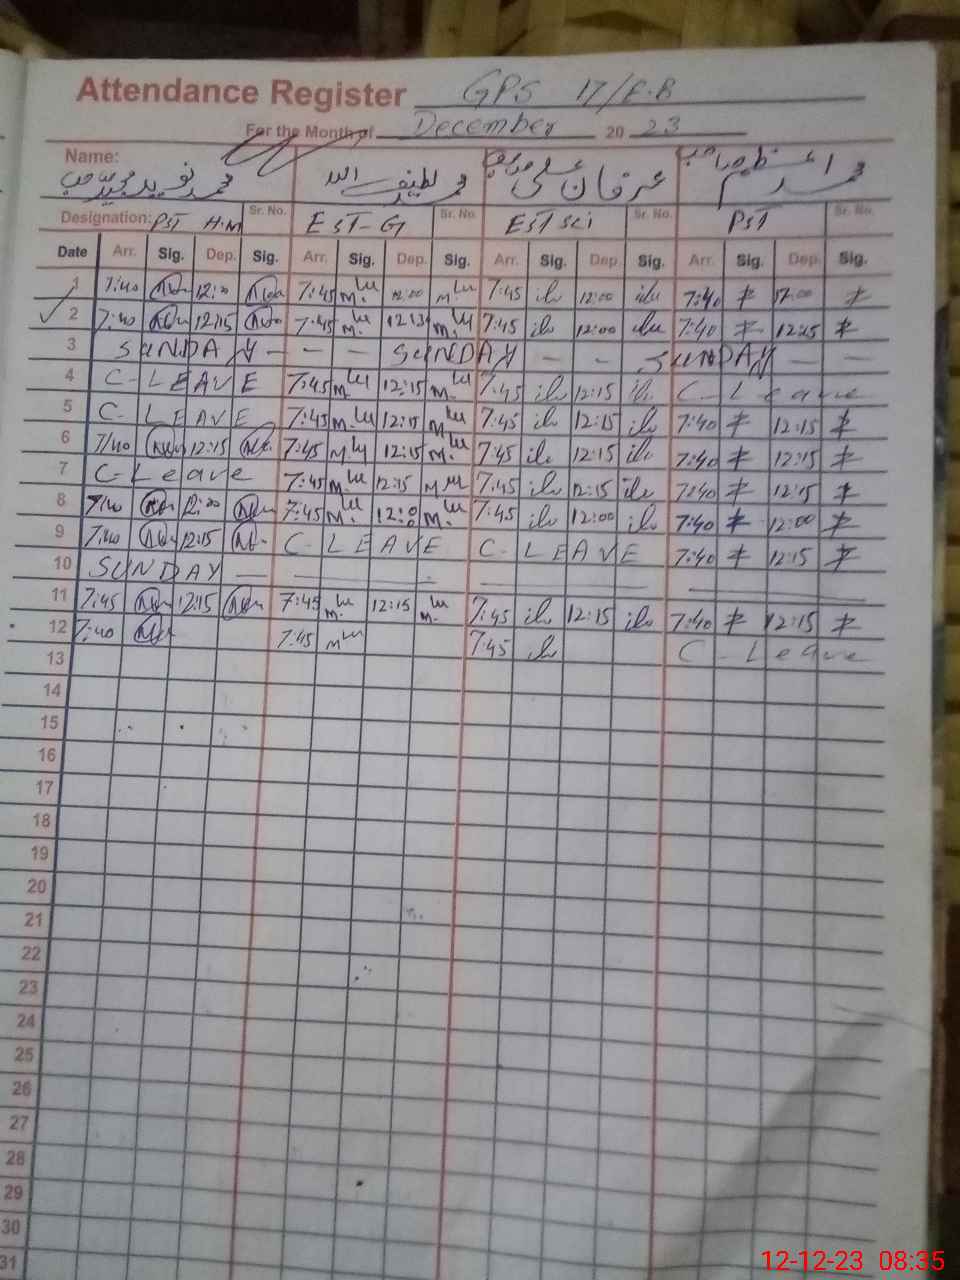 Attendance Register GPS 17/E.B
For the Month of December 20 23
Name: محمد نوید مجید صاحب محمد لطیف اللہ عرفان علی صاحب محمد اعظم صاحب
Designation: PST H.M Sr. No. EST-G Sr. No. EST Sci Sr. No. PST Sr. No.
Date Arr. Sig. Dep. Sig. Arr. Sig. Dep. Sig. Arr. Sig. Dep. Sig. Arr. Sig. Dep. Sig.
1 7:40 12:00 7:45 12:00 7:45 12:00 7:40 12:00
2 7:40 12:15 7:45 12:15 7:45 12:00 7:40 12:15
3 SUNDAY - - - SUNDAY - - SUNDAY - -
4 C-LEAVE 7:45 12:15 7:45 12:15 C-Leave
5 C-LEAVE 7:45 12:15 7:45 12:15 7:40 12:15
6 7:40 12:15 7:45 12:15 7:45 12:15 7:40 12:15
7 C-Leave 7:45 12:15 7:45 12:15 7:40 12:15
8 7:40 12:00 7:45 12:00 7:45 12:00 7:40 12:00
9 7:40 12:15 C-LEAVE C-LEAVE 7:40 12:15
10 SUNDAY
11 7:45 12:15 7:45 12:15 7:45 12:15 7:40 12:15
12 7:40 7:45 7:45 C-Leave
13
14
15
16
17
18
19
20
21
22
23
24
25
26
27
28
29
30
31
12-12-23 08:35